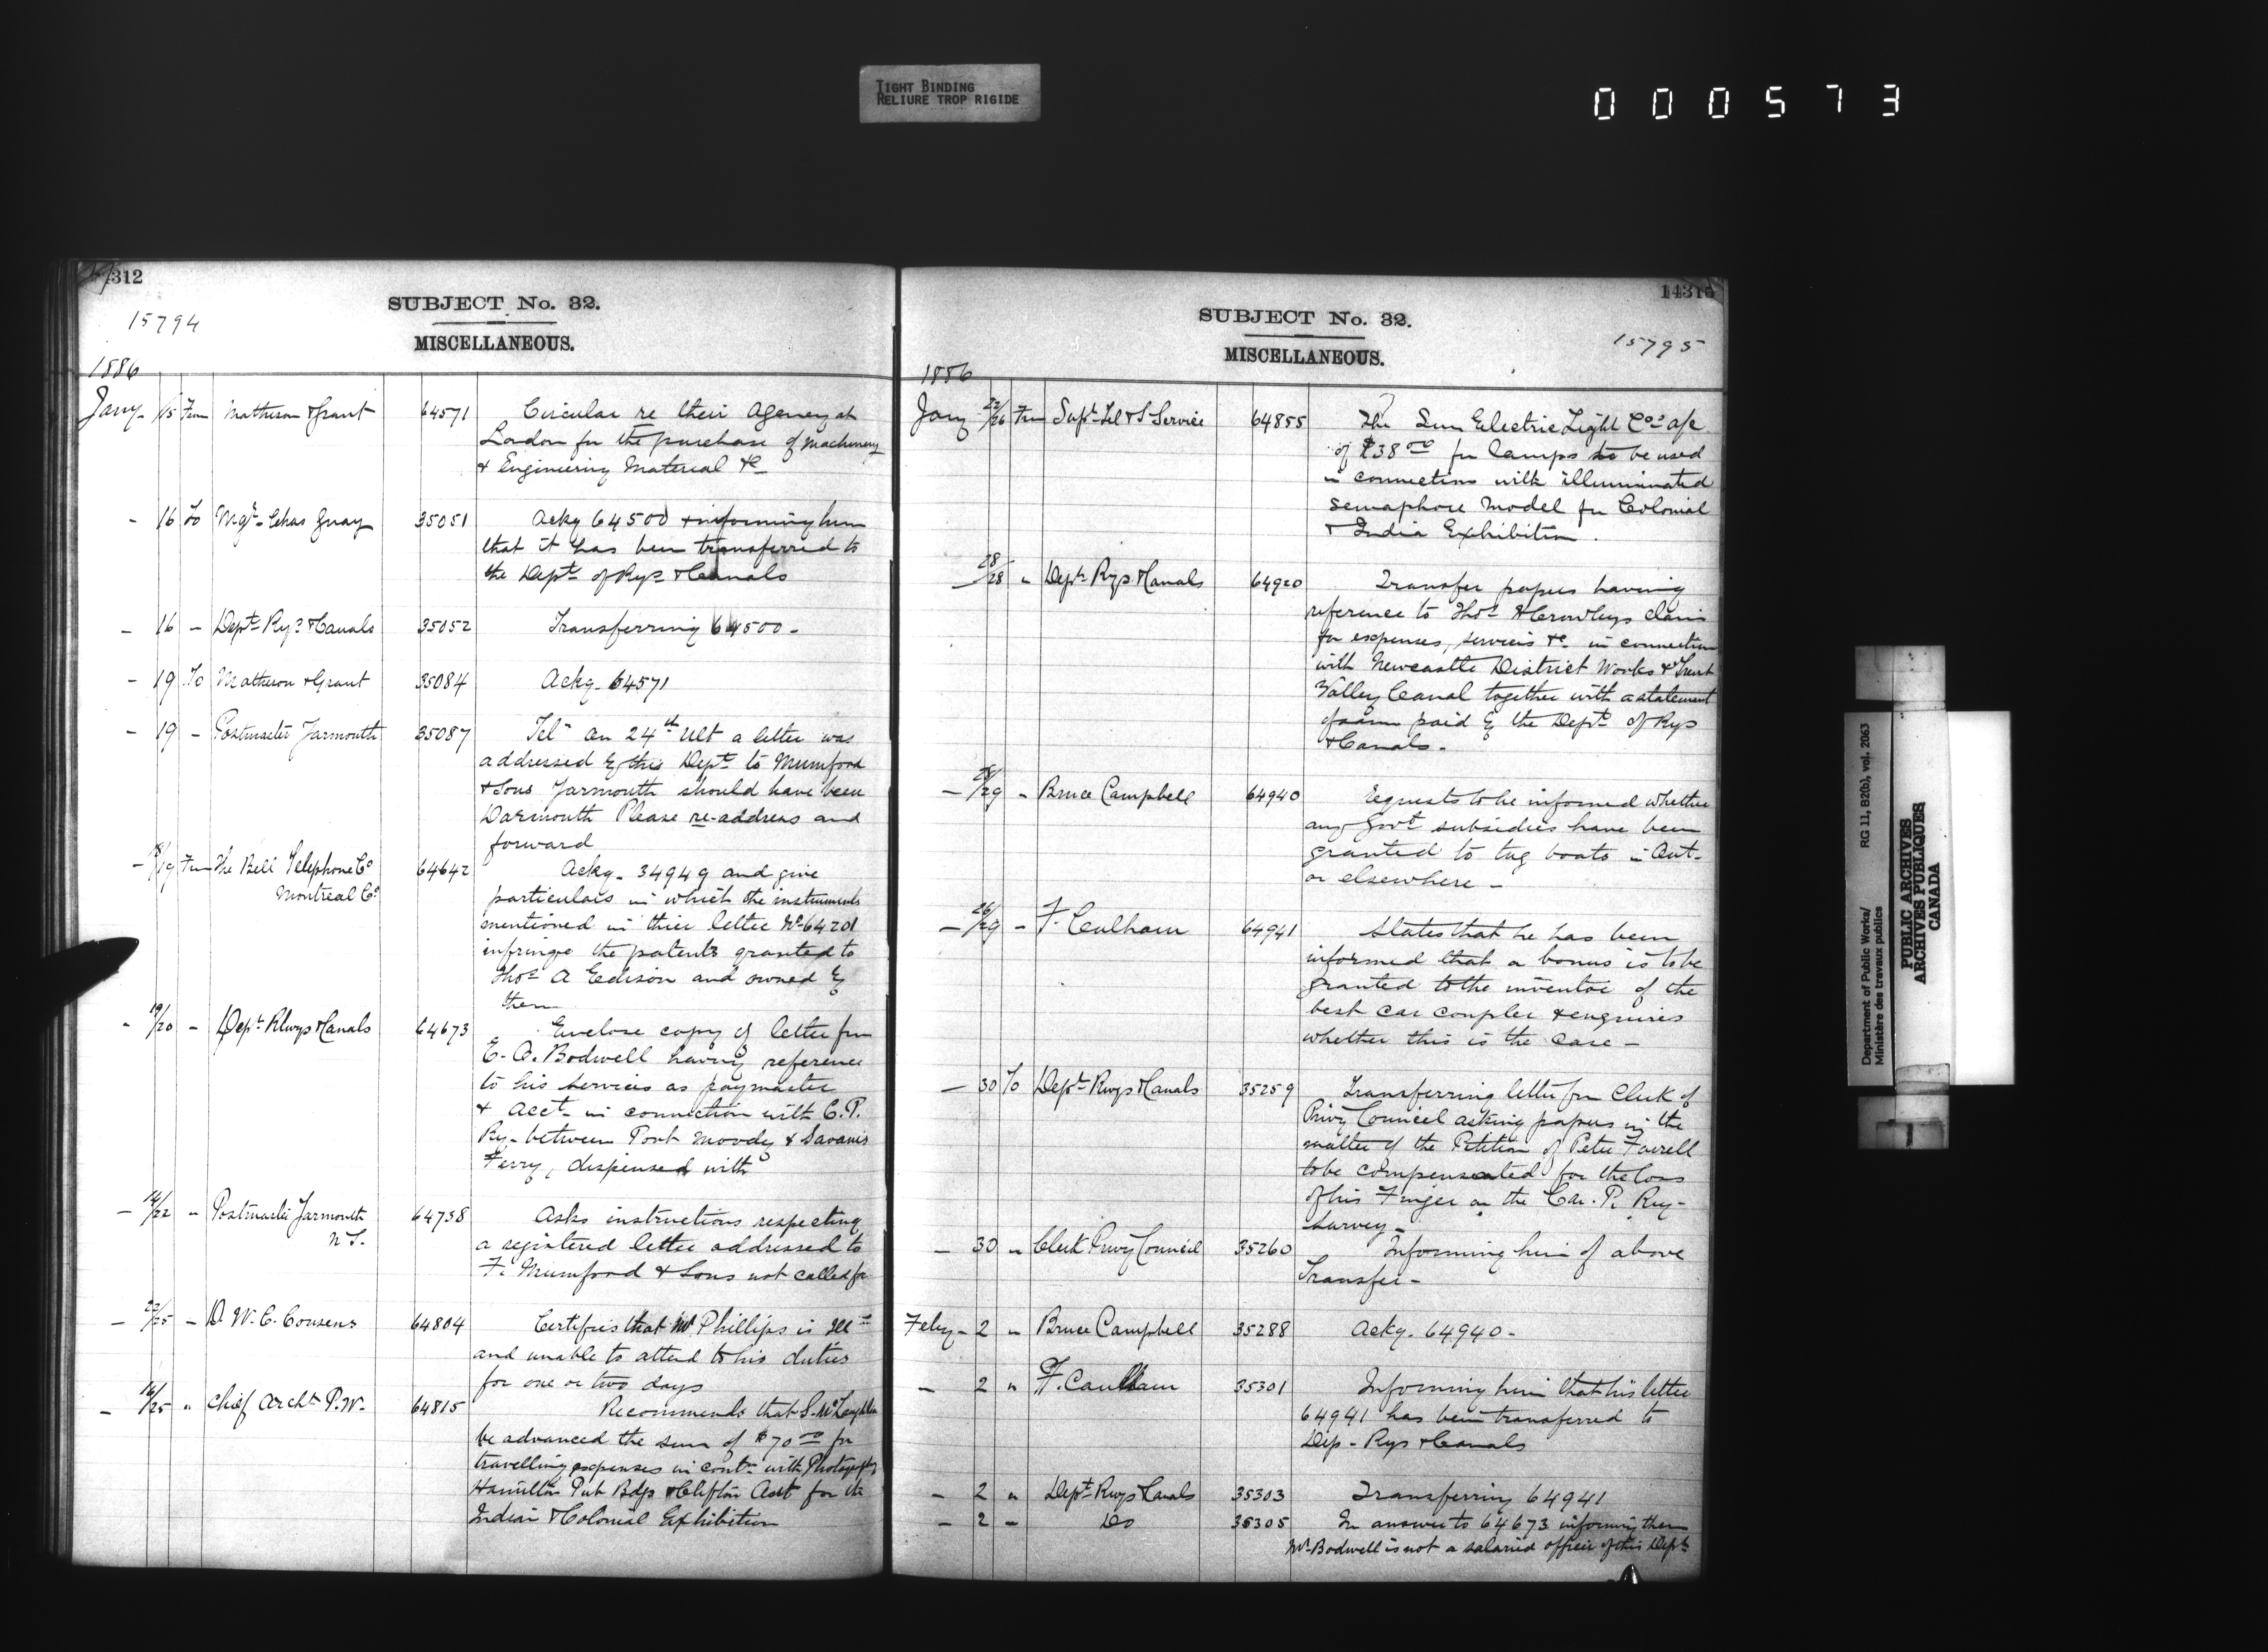 TIGHT BINDING
RELIURE TROP RIGIDE
000573
312
15794
SUBJECT No. 32.
MISCELLANEOUS.
1886
Jany - 15 From Matheson & Grant 64571 Circular re their Agency at
London for the purchase of machinery
& Engineering Material &c
- 16 To Mgr. Chas Guay 35051 Ackg 64500 & informing him
that it has been transferred to
the Dept of Rys & Canals
- 16 - Dept Rys & Canals 35052 Transferring 64500 -
- 19 To Matheson & Grant 35084 Ackg - 64571
- 19 - Postmaster Yarmouth 35087 Tel - On 24th Ult a letter was
addressed by this Dept to Mumford
& Sons Yarmouth should have been
Darmouth Please re-address and
forward
- 18/19 From The Bell Telephone Co 64642 Ackg - 34949 and give
Montreal Co particulars in which the instruments
mentioned in thier letter No 64201
infringe the patents granted to
Thos A Edison and owned by
them
- 19/20 - Dept Rlwys & Canals 64673 Enclose copy of letter from
E. A. Bodwell having reference
to his services as paymaster
& Acct - in connection with C. P.
Ry - between Port Moody & Savanis
Ferry, dispensed with
- 14/22 - Postmaster Yarmouth 64738 Asks instructions respecting
N S. a registered letter addressed to
F. Mumford & Sons not called for
- 22/25 - D. W. C. Cousens 64804 Certifies that Mr Phillips is ill -
and unable to attend to his duties
for one or two days
- 16/25 " Chief Archt P. W. 64815 Recommends that S. McLaughlin
be advanced the sum of $70 00 for
travelling expenses in contn with Photographing
Hamilton Pub Bdgs & Clifton for the
Indian & Colonial Exhibition
SUBJECT No. 32.
MISCELLANEOUS.
15795
1886
Jany 22/26 From Supt Tel & S Service 64855 The Sun Electric Light Co's a/c
of $38 00 for lamps to be used
in connection with illuminated
semaphore model for Colonial
& India Exhibition .
- 28/28 " Dept Rys & Canals 64920 Transfer papers having
reference to Thos A Crowleys claim
for expenses, services &c in connection
with Newcastle District Works & Trent
Valley Canal together with a statement
of paid by the Dept of Rys
& Canals -
- 28/29 - Bruce Campbell 64940 Requests to be informed whether
any Govt subsidies have been
granted to tug boats in Ont -
or elsewhere -
- 26/29 - F. Culham 64941 States that he has been
informed that a bonus is to be
granted to the inventor of the
best car coupler & enquires
whether this is the case -
- 30 To Dept Rwys & Canals 35259 Transferring letter from Clerk of
Privy Council asking papers in the
matter of the Petition of Peter Farrell
to be compensated for the loss
of his Finger on the Can. P. Rwy -
Survey -
- 30 " Clerk Privy Council 35260 Informing him of above
Transfer -
Feby - 2 " Bruce Campbell 35288 Ackg - 64940 -
- 2 " F. Caulham 35301 Informing him that his letter
64941 has been transferred to
Dep - Rys & Canals
- 2 " Dept Rwys & Canals 35303 Transferring 64941
- 2 - Do 35305 In answer to 64673 informing them
Mr Bodwell is not a salaried officer of this Dept
Department of Public Works/ RG 11, B2(b), vol. 2063
Ministère des travaux publics
PUBLIC ARCHIVES
ARCHIVES PUBLIQUES
CANADA